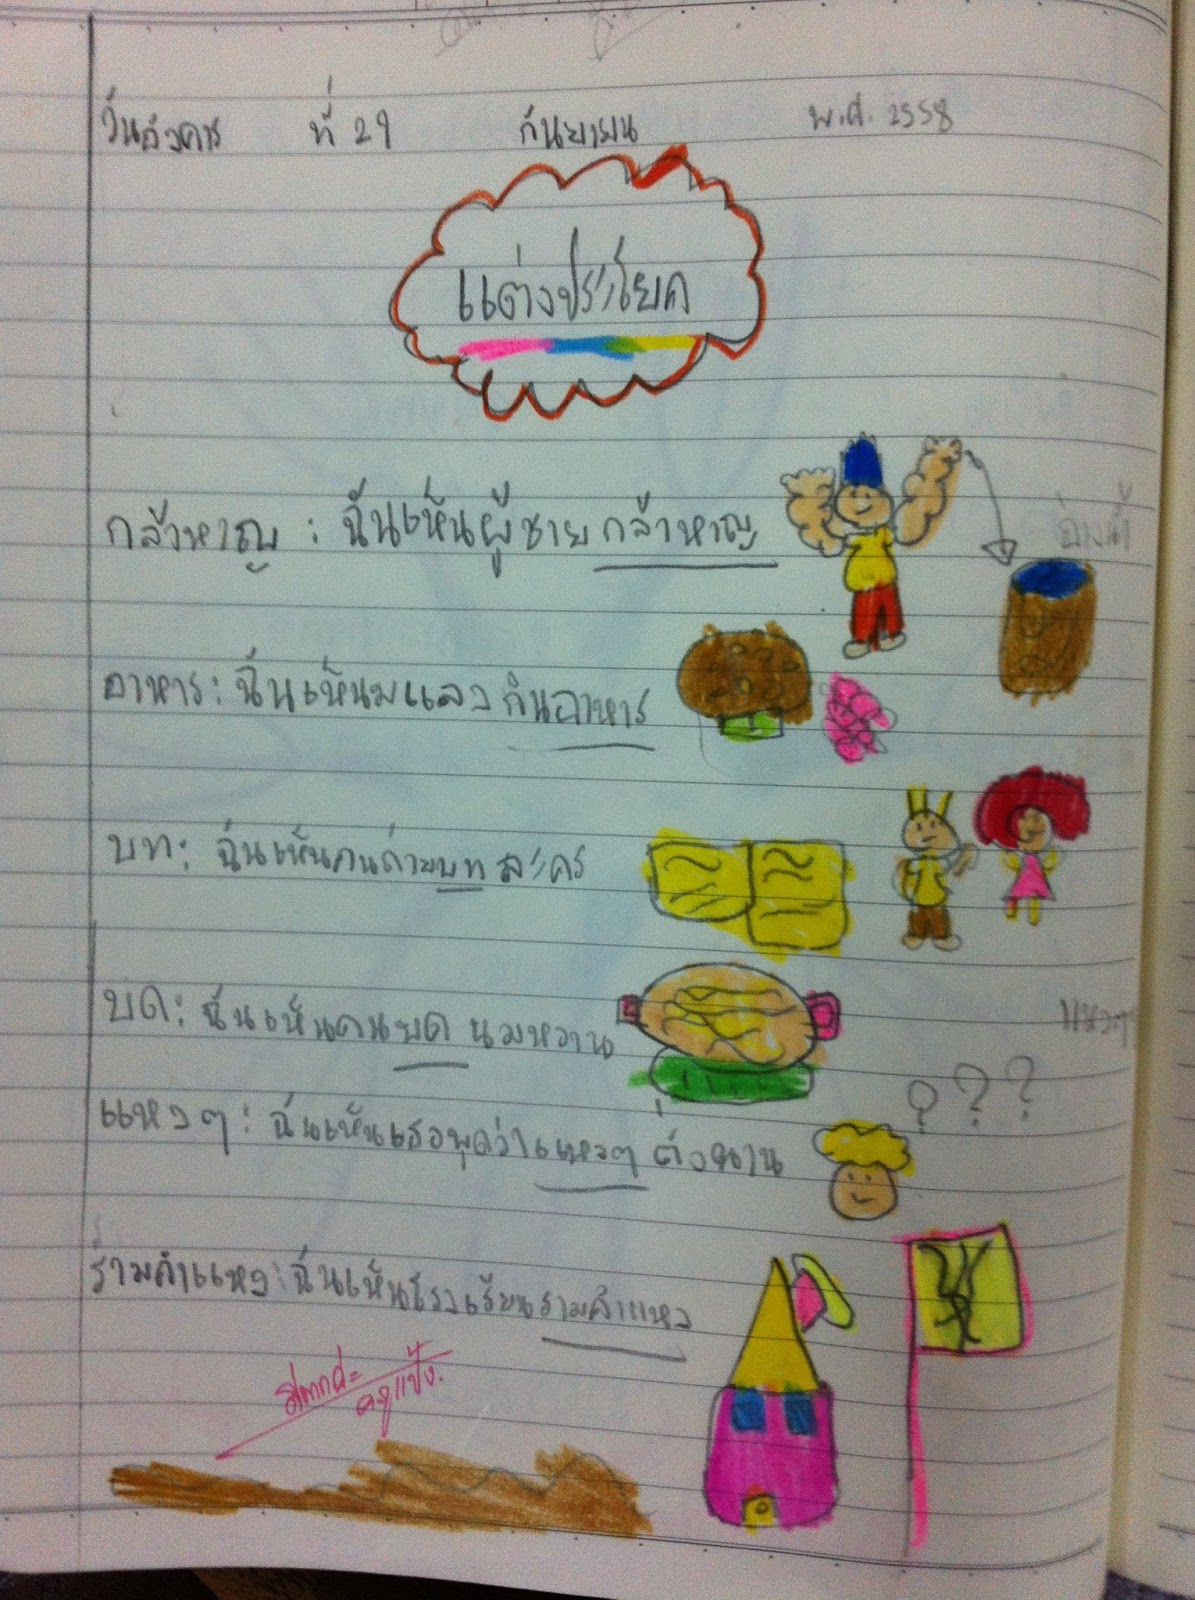 วันอังคาร ที่ 29 กันยายน พ.ศ. 2558
แต่งประโยค
กล้าหาญ : ฉันเห็นผู้ชายกล้าหาญ
อ่างน้ำ
อาหาร : ฉันเห็นแมลงกินอาหาร
บท : ฉันเห็นคนถ่ายบทละคร
บด : ฉันเห็นคนบดนมหวาน
แหงๆ
แหงๆ : ฉันเห็นเธอพูดว่าแหงๆ ตั้งนาน
? ? ?
รามคำแหง : ฉันเห็นโรงเรียนรามคำแหง
ครูแป้ง.